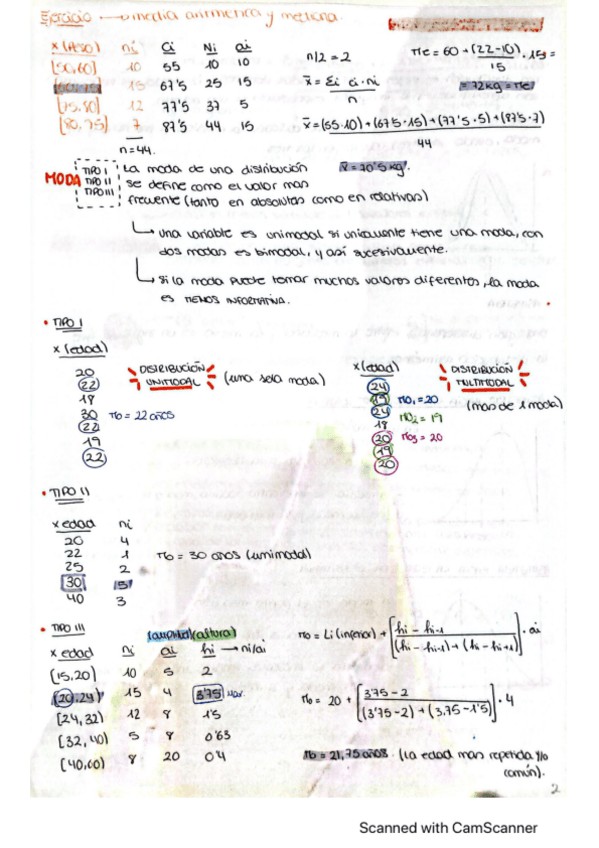 Ejercicio → media aritmética y mediana.
x (peso) ni Ci Ni ai
[50,60] 10 55 10 10
15 67'5 25 15
[75,80] 12 77'5 37 5
[80,95] 7 87'5 44 15
n=44.
n/2 = 2
x̄ = Σi ci·ni / n
x̄ = (55·10)+(67'5·15)+(77'5·5)+(87'5·7) / 44
Me = 60 + (22-10) / 15 · 15 =
= 72kg = Me
x̄ = 70'5 kg.
MODA
TIPO I
TIPO II
TIPO III
La moda de una distribución
se define como el valor mas
frecuente (tanto en absolutas como en relativas)
↳ una variable es unimodal si unicamente tiene una moda, con
dos modas es bimodal, y así sucesivamente.
↳ si la moda puede tomar muchos valores diferentes, la moda
es MENOS INFORMATIVA.
• TIPO I
x (edad)
20
22
18
30
22
19
22
Mo = 22 años
DISTRIBUCIÓN
UNIMODAL
(una sola moda)
x (edad)
24
19
24
18
20
19
20
Mo₁ = 20
Mo₂ = 19
Mo₃ = 20
DISTRIBUCIÓN
MULTIMODAL
(mas de 1 moda)
• TIPO II
x edad ni
20 4
22 1
25 2
30 5
40 3
Mo = 30 años (unimodal)
• TIPO III
(amplitud) (altura)
x edad ni ai hi → ni/ai
[15,20) 10 5 2
[20,24) 15 4 3'75 Max.
[24,32) 12 8 1'5
[32,40) 5 8 0'63
[40,60) 8 20 0'4
Mo = Li (inferior) + [hi - hi-1 / (hi - hi-1) + (hi - hi+1)] · ai
Mo = 20 + [3'75 - 2 / (3'75 - 2) + (3,75 - 1'5)] · 4
Mo = 21,75 años. (La edad mas repetida y/o
común).
2
Scanned with CamScanner